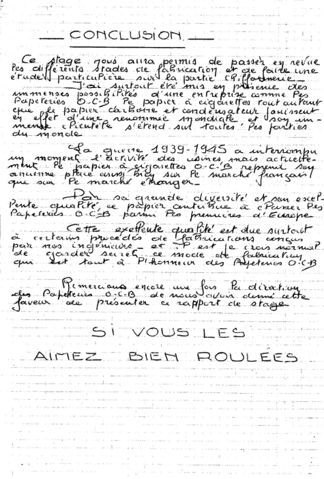 CONCLUSION
Ce stage nous aura permis de passer en revue
les différents stades de fabrication et de faire une
étude particulière sur la partie Chiffonnerie
J'ai surtout été mis en présence des
immenses possibilités d'une entreprise comme les
Papeteries O-C-B. Le papier à cigarettes tout autant
que le papier carbone et condensateur jouissent
en effet d'une renommée mondiale et son im-
mense clientèle s'étend sur toutes les parties
du monde
La guerre 1939-1945 a interrompu
un moment l'activité des usines mais actuelle-
ment le papier à cigarettes O-C-B reprend son
ancienne place aussi bien sur le marché français
que sur le marché étranger
Par sa grande diversité et son excel-
lente qualité, ce papier continue à classer les
Papeteries O-C-B parmi les premières d'Europe
Cette excellente qualité est due surtout
à certains procédés de fabrications conçus
par nos ingénieurs et il est je crois normal
de garder secret ce mode de fabrication
qui est tout à l'honneur des Papeteries O-C-B
Remercions encore une fois la direction
des Papeteries O-C-B de nous avoir donné cette
faveur de présenter ce rapport de stage
SI VOUS LES
AIMEZ BIEN ROULÉES